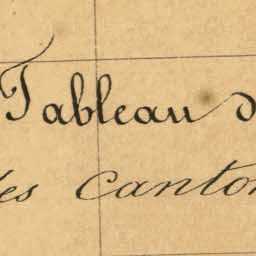 Tableau d
les canton